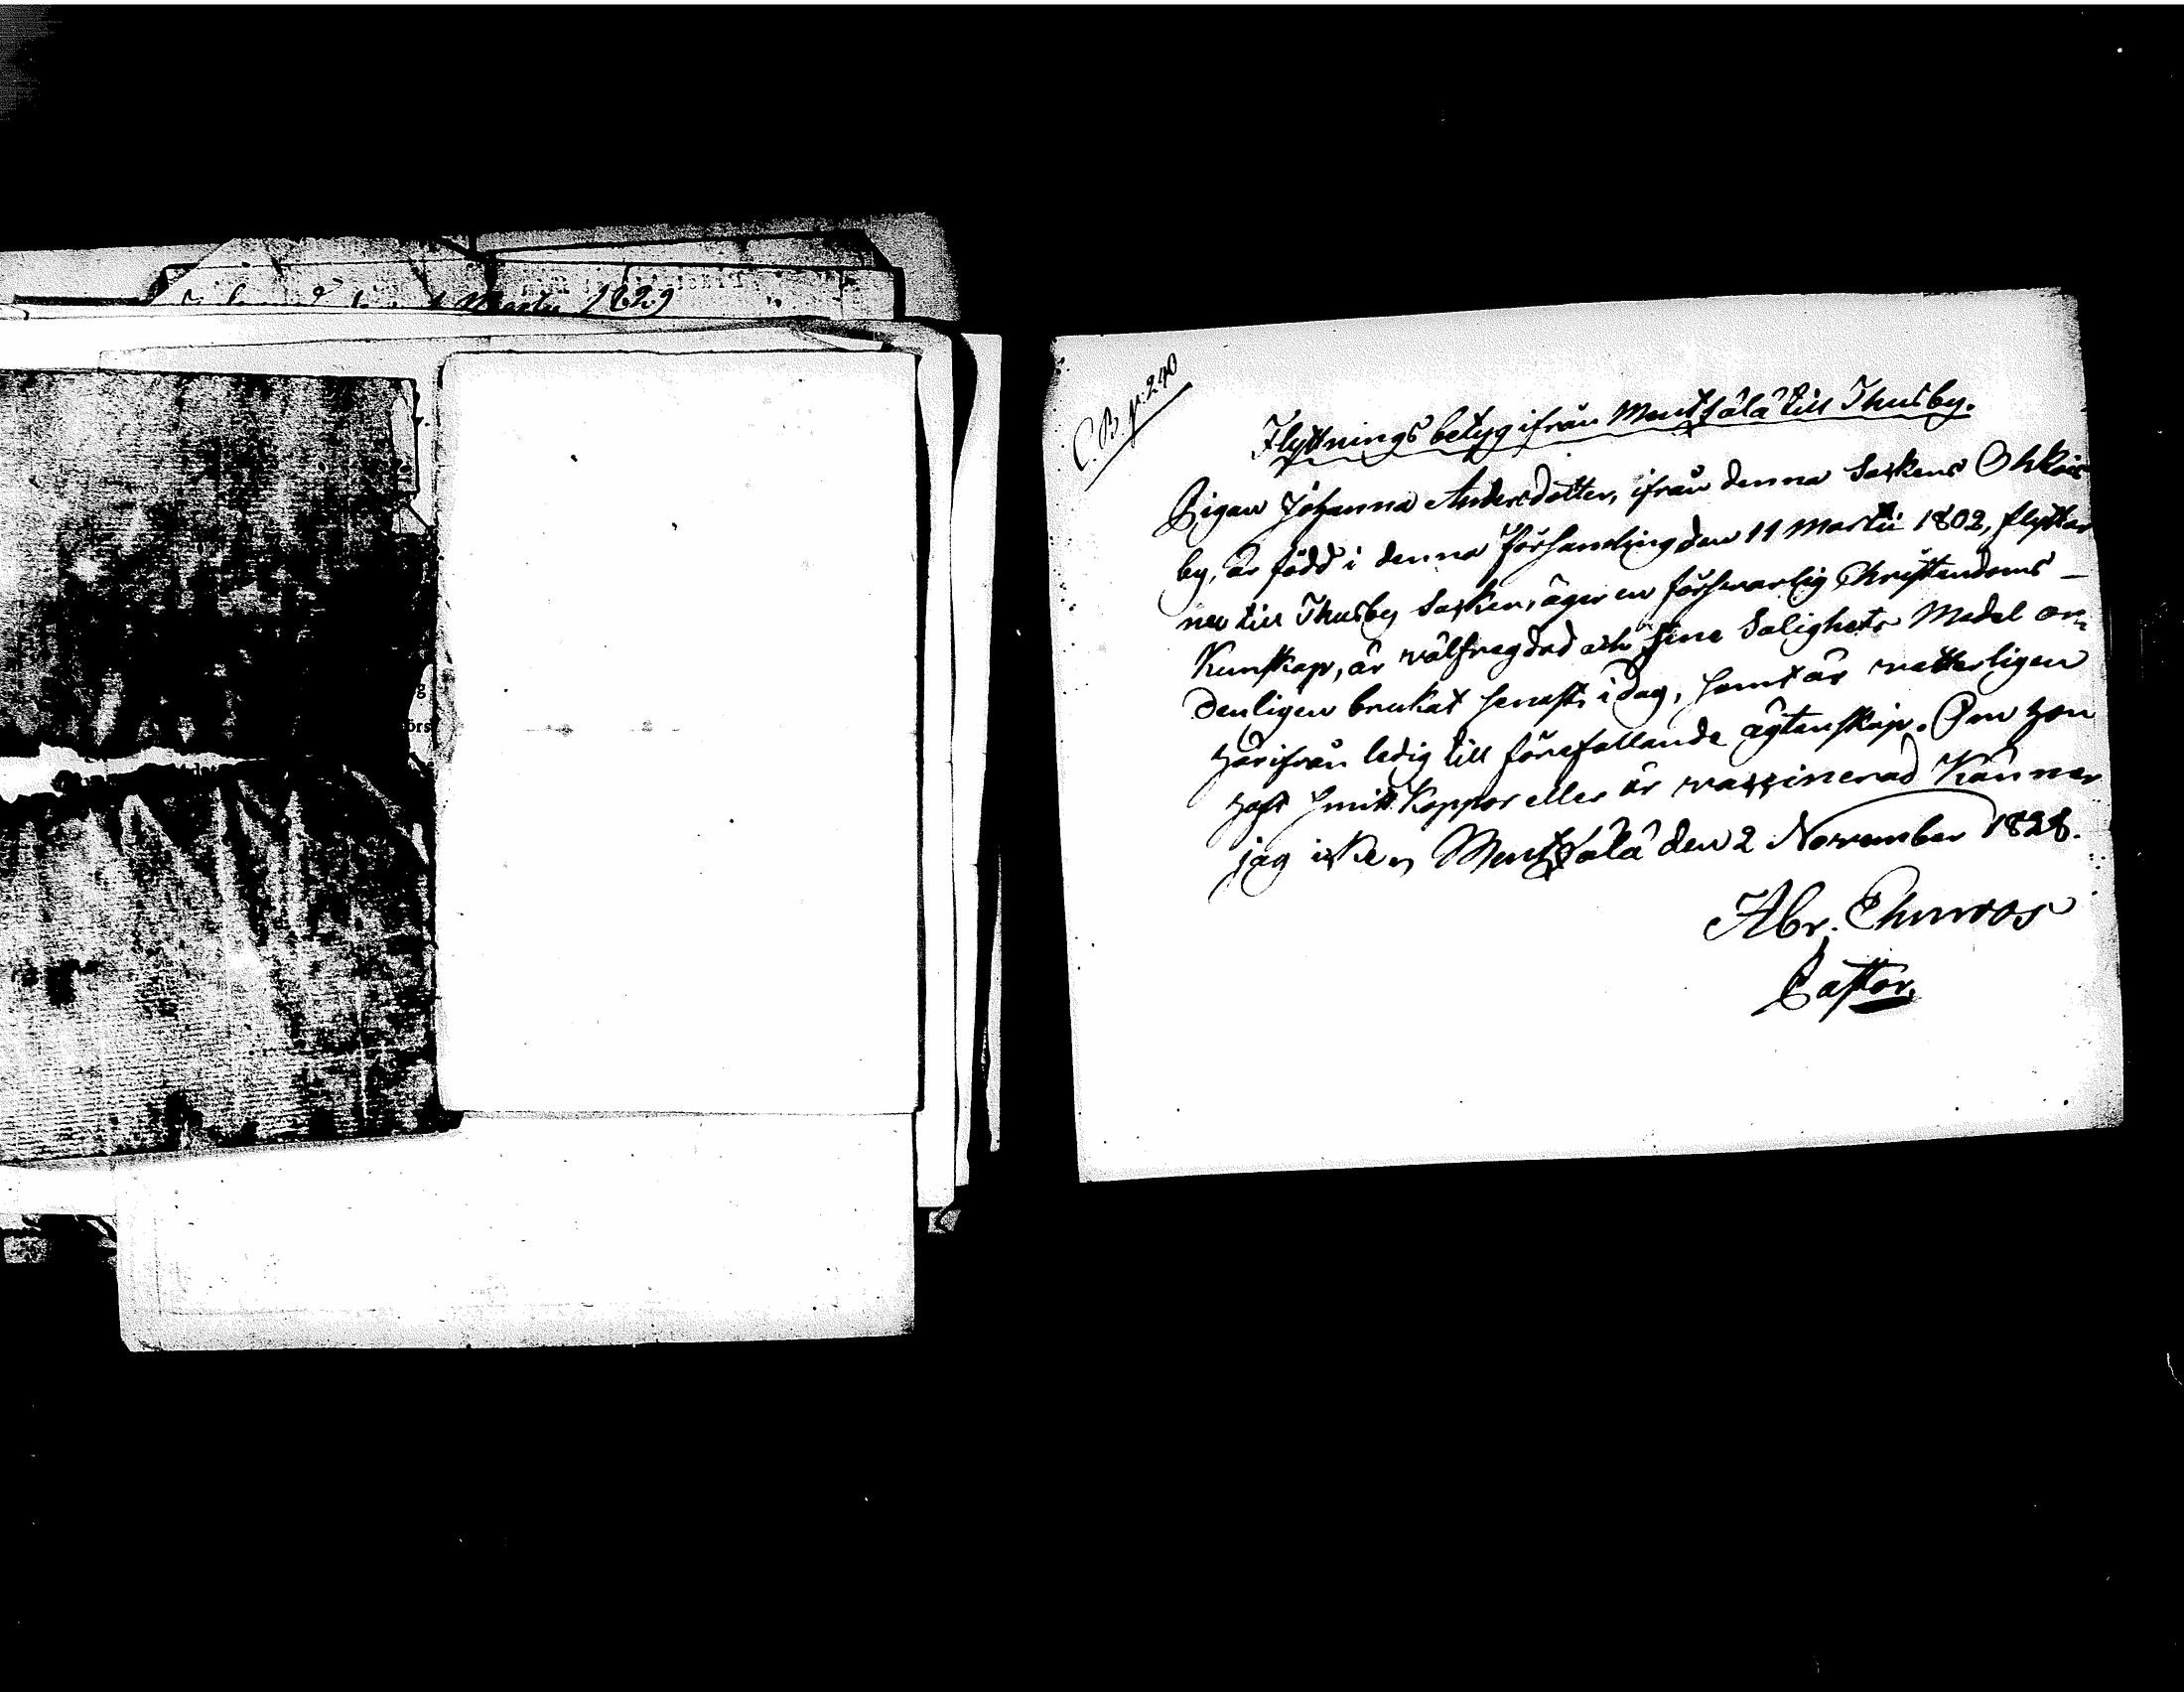 Martii 1829
g
örs
C. B. p. 240
Flyttnings betyg ifrån Mentsälä till Thusby.
Pigan Johanna Andersdotter, ifrån denna Sockens Ohkois
by, är född i denna församling den 11 Martii 1802, flyttar
nu till Thusby Socken, äger en försvarlig Christendoms-
Kunskap, är välfrägdad och sine Salighets Medel or-
denligen brukat senast i dag, samt är vetterligen
härifrån ledig till förefallande ägtenskap. Om hon
haft Smitt Koppor eller är vaccinerad Känner
jag icke, Mentsälä den 2 November 1828.
Abr.
Pastor.